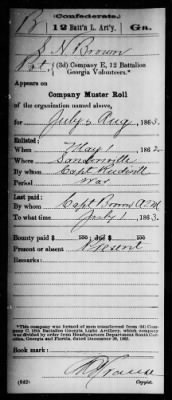 Confederate.
B 12 Batt'n L. Art'y. Ga.
S. N. Brown
Pvt, (3d) Company E, 12 Battalion
Georgia Volunteers.*
Appears on
Company Muster Roll
of the organization named above,
for July & Aug, 1863.
Enlisted:
When May 1, 1862.
Where Sandersville
By whom Capt Rudisill
Period War
Last paid:
By whom Capt Brown AQM
To what time July 1, 1863.
Bounty paid $ 100; due $ 100
Present or absent Present
Remarks:
*This company was formed of men transferred from (2d) Company C, 12th Battalion Georgia Light Artillery, which company was divided by order from Headquarters Department South Carolina, Georgia and Florida, dated December 28, 1862.
Book mark:
(642) Copyist.